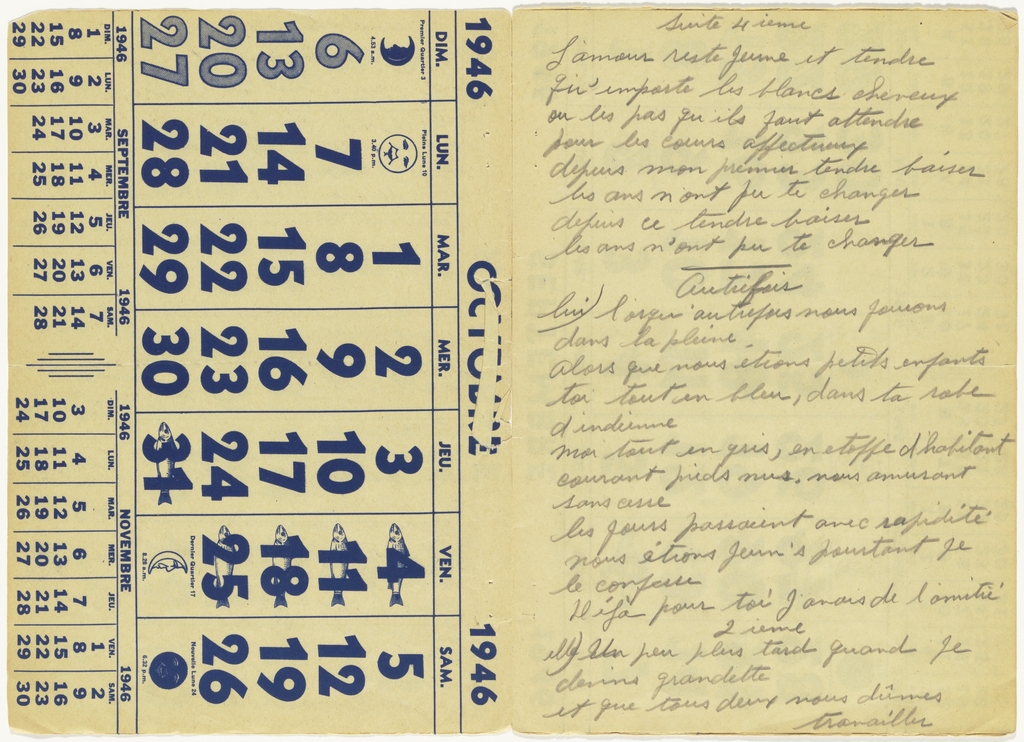 1946 OCTOBRE 1946
DIM. LUN. MAR. MER. JEU. VEN. SAM.
Premier Quartier 3
4.53 p.m.
Pleine Lune 10
3.40 p.m.
1 2 3 4 5
6 7 8 9 10 11 12
13 14 15 16 17 18 19
20 21 22 23 24 25 26
27 28 29 30 31
Dernier Quartier 17
8.28 a.m.
Nouvelle Lune 24
6.32 p.m.
1946 SEPTEMBRE 1946
DIM. LUN. MAR. MER. JEU. VEN. SAM.
1 2 3 4 5 6 7
8 9 10 11 12 13 14
15 16 17 18 19 20 21
22 23 24 25 26 27 28
29 30
1946 NOVEMBRE 1946
DIM. LUN. MAR. MER. JEU. VEN. SAM.
1 2
3 4 5 6 7 8 9
10 11 12 13 14 15 16
17 18 19 20 21 22 23
24 25 26 27 28 29 30
Suite 4 ieme
L'amour reste jeune et tendre
Qu'importe les blancs cheveux
ou les pas qu'ils faut attendre
pour les cœurs affectueux
depuis mon premier tendre baiser
les ans n'ont pu te changer
depuis ce tendre baiser
les ans n'ont pu te changer
Autrefois
l'orqu'autrefois nous jouions
dans la pleine.
alors que nous etions petits enfants
toi tout en bleu, dans ta robe
d'indienne
moi tout en gris, en etoffe d'habitant
courant pieds nus, nous amusant
sans cesse
les jours passaient avec rapidité
nous étions jeun's pourtant je
le confesse
Déjà pour toi j'avais de l'amitié
2 ieme
Un peu plus tard quand je
devins grandette
et que tous deux nous dûmes
travailler